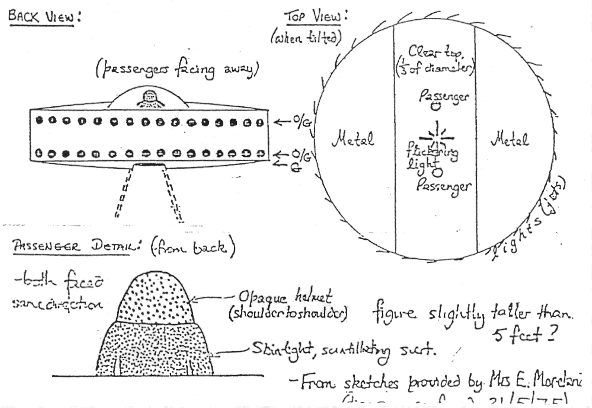 BACK VIEW:
(passengers facing away)
O/G
O/G
G
TOP VIEW:
(when tilted)
Clear top
(⅓ of diameter)
Passenger
Metal
flickering
light
Metal
Passenger
lights (jets)
PASSENGER DETAIL: (from back)
-both faced
same direction
Opaque helmet
(shoulder to shoulder)
Skin-tight, scintillating suit.
figure slightly taller than
5 feet?
-From sketches provided by Mrs E.